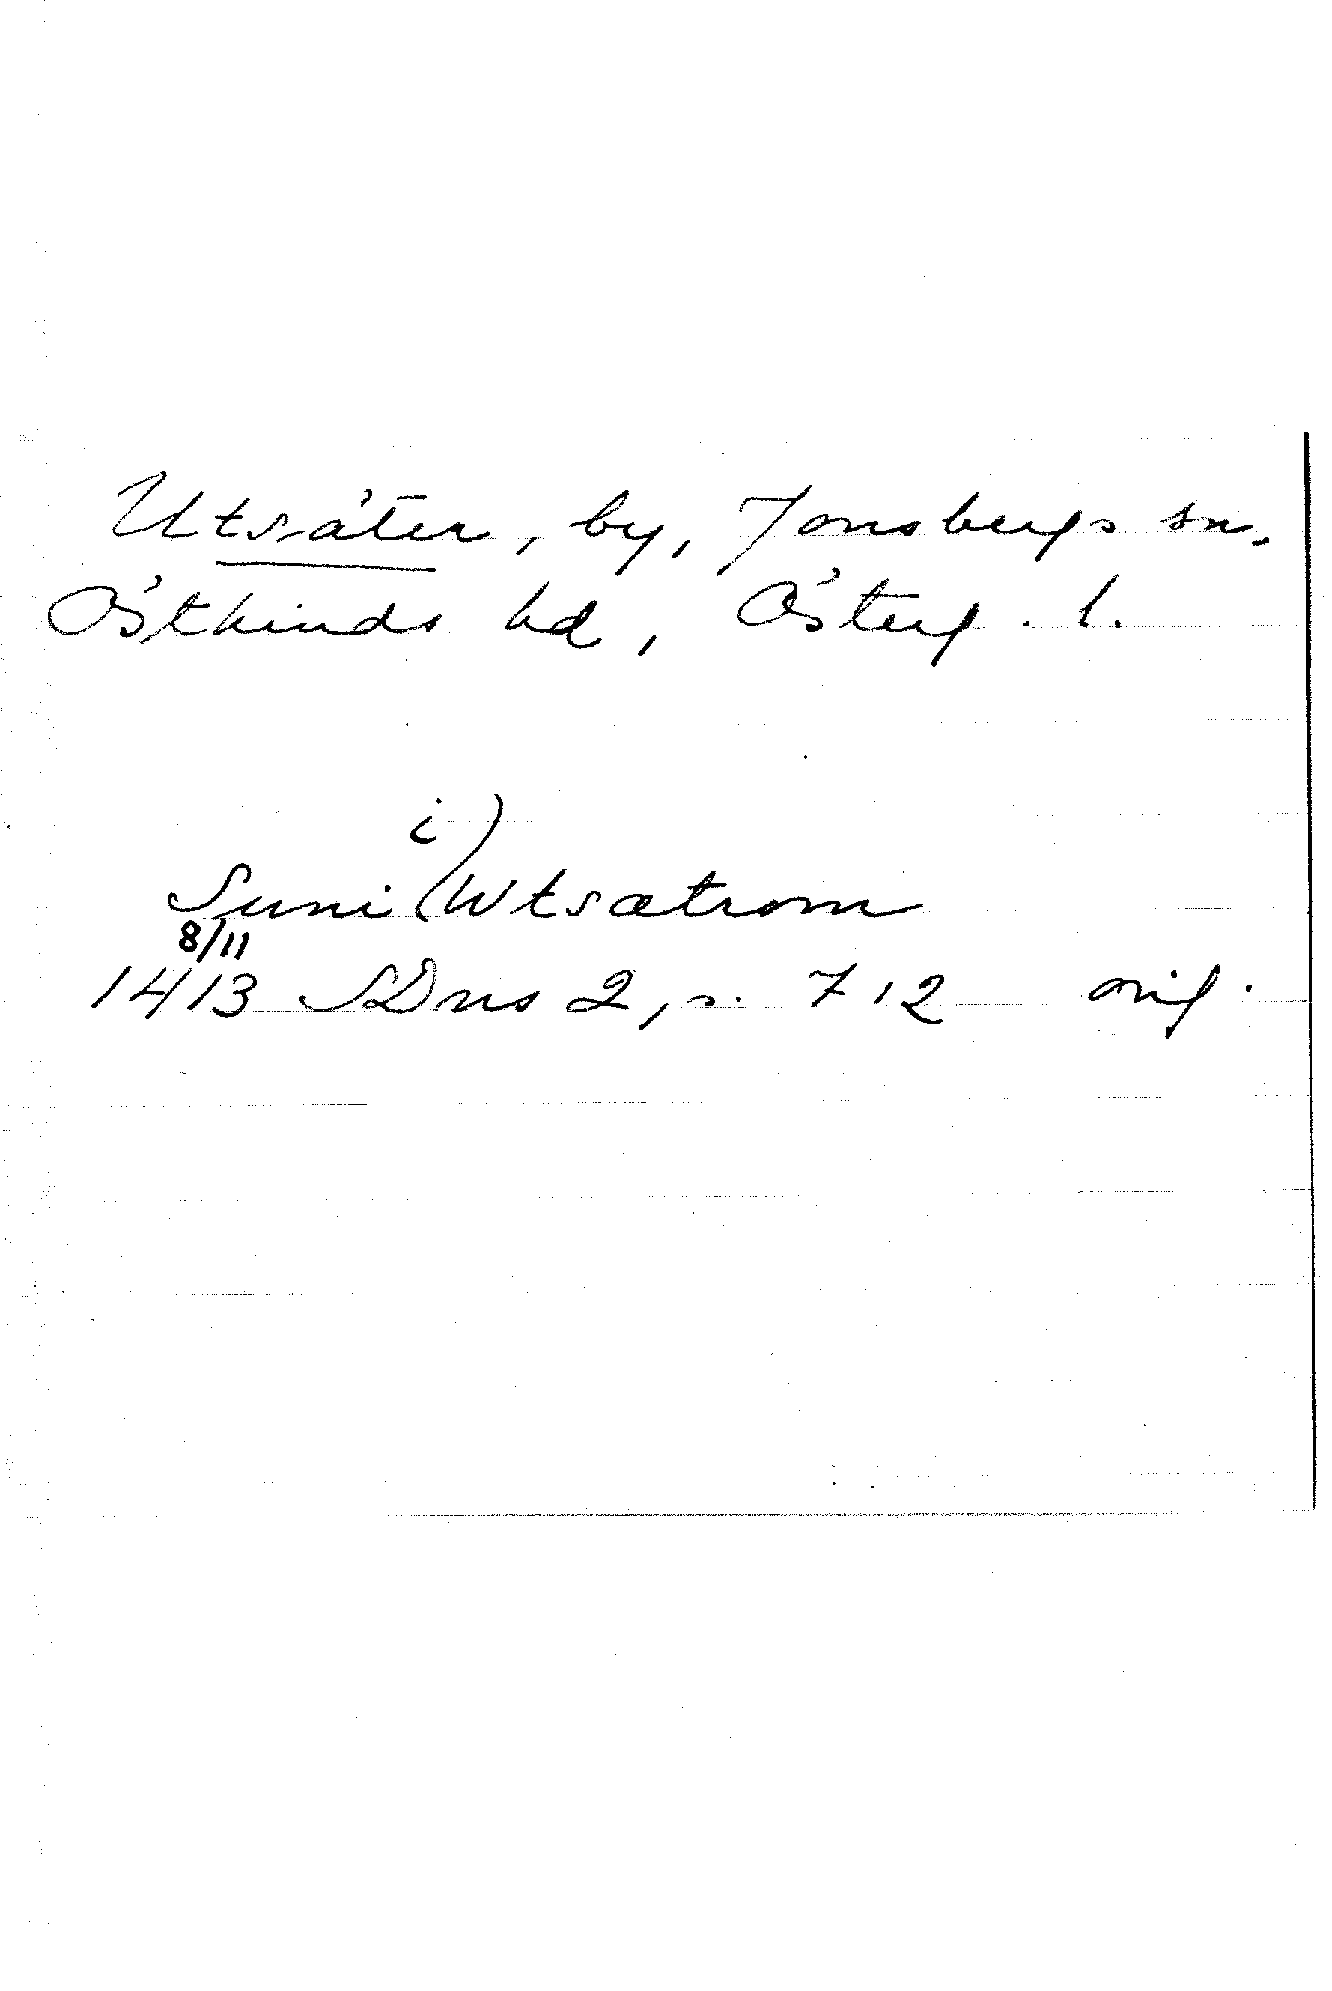 Utsäter, by, Jonsbergs sn,
Östkinds hd, Österg. l.
i)
Suni (Wtsætrom
8/11
1413 SDns 2, s. 712 orig.